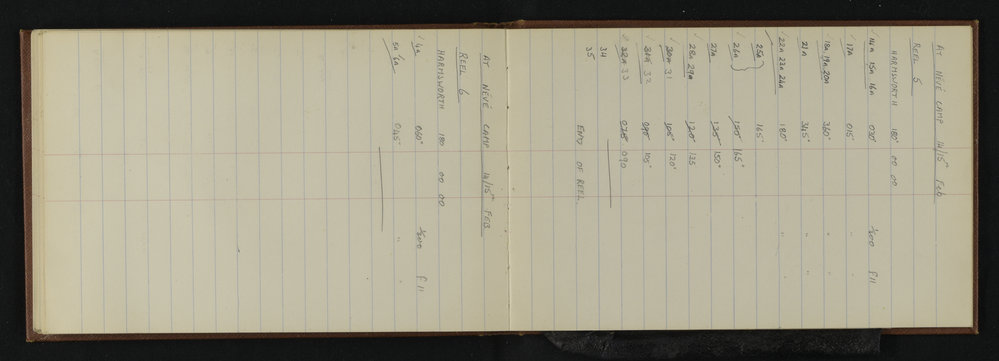 AT NÉVÉ CAMP 14/15th Feb
REEL 5
HARMSWORTH 180° 00 00
✓ 14A 15A 16A 030° 1/200 f 11
✓ 17A 015° "
✓ 18A 19A 20A 360° "
21A 345° "
22A 23A 24A 180° "
25A 165°
✓ 26A 150° 165°
27A 135° 150°
✓ 28A 29A 120° 135
✓ 30A 31 105° 120°
✓ 31A 32 090° 105°
✓ 32A 33 075° 090
34
35 END OF REEL
AT NÉVÉ CAMP 14/15th FEB
REEL 6
HARMSWORTH 180 00 00
✓ 4A 060° 1/200 f 11
5A 6A 045° "